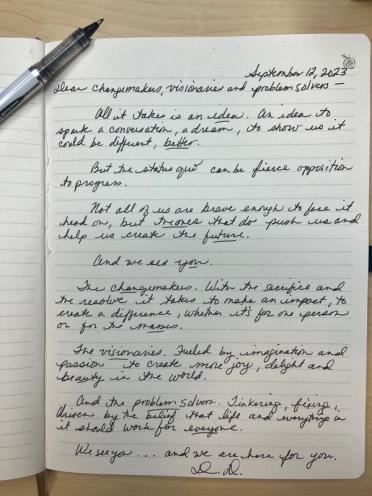 September 12, 2023
Dear Changemakers, visionaries and problem solvers —
All it takes is an idea. An idea to
spark a conversation, a dream, to show us it
could be different, better.
But the status quo can be fierce opposition
to progress.
Not all of us are brave enough to face it
head on, but the ones that do push us and
help us create the future.
And we see you.
The changemakers. With the sacrifice and
the resolve it takes to make an impact, to
create a difference, whether it's for one person
or for the masses.
The visionaries. Fueled by imagination and
passion to create more joy, delight and
beauty in the world.
And the problem solvers. Tinkering, fixing,
driven by the belief that life and everything in
it should work for everyone.
We see you ... and we are here for you.